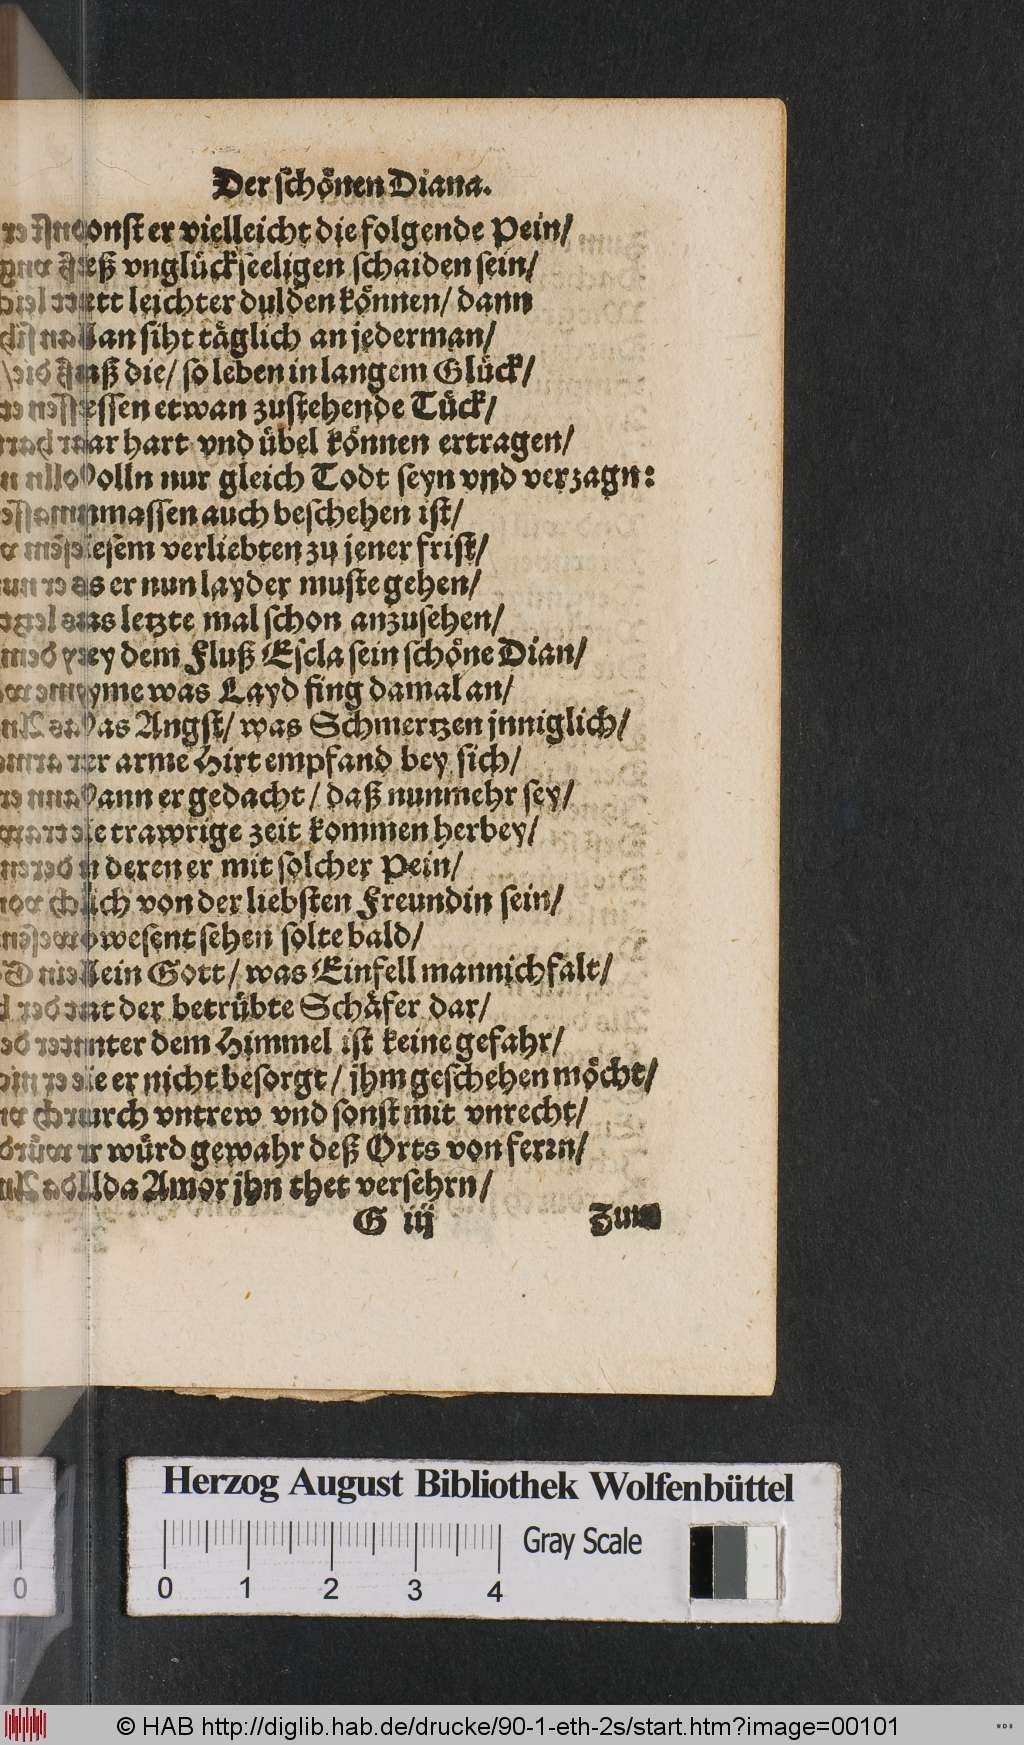 Der schönen Diana.
onst er vielleicht die folgende Pein/
eß vnglückseeligen schaiden sein/
tt leichter dulden können/ dann
an siht täglich an jederman/
aß die/ so leben in langem Glück/
essen etwan zustehende Tück/
ar hart vnd übel können ertragen/
olln nur gleich Todt seyn vnd verzagn:
massen auch beschehen ist/
iesem verliebten zu jener frist/
s er nun layder muste gehen/
as letzte mal schon anzusehen/
ey dem Fluß Escla sein schöne Dian/
yme was Layd fing damal an/
as Angst/ was Schmertzen jnniglich/
er arme Hirt empfand bey sich/
ann er gedacht/ daß nunmehr sey/
ie trawrige zeit kommen herbey/
n deren er mit solcher Pein/
ich von der liebsten Freundin sein/
wesent sehen solte bald/
ein Gott/ was Einfell mannichfalt/
t der betrübte Schäfer dar/
nter dem Himmel ist keine gefahr/
ie er nicht besorgt/ jhm geschehen möcht/
urch vntrew vnd sonst mit vnrecht/
r würd gewahr deß Orts von ferrn/
da Amor jhn thet versehrn/
G iij Zum
Herzog August Bibliothek Wolfenbüttel
Gray Scale
0 1 2 3 4
H
0
© HAB http://diglib.hab.de/drucke/90-1-eth-2s/start.htm?image=00101